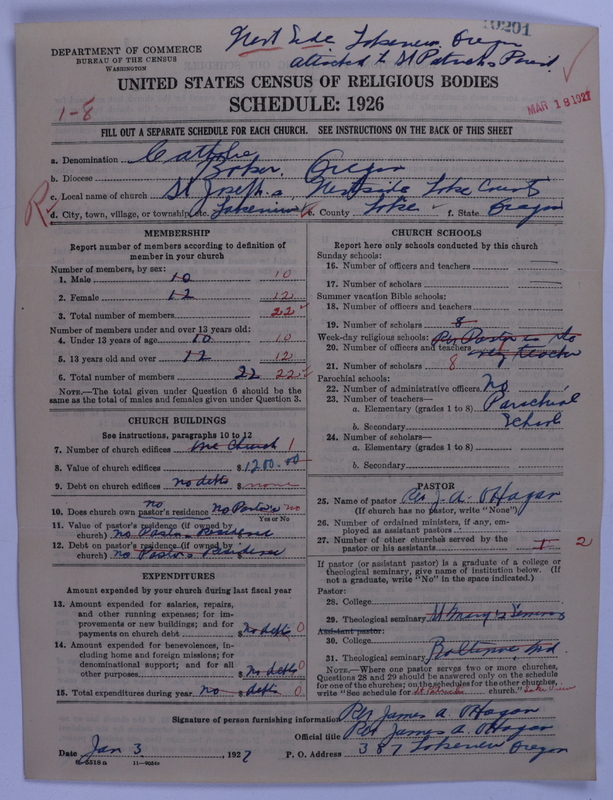 10291
West Side Lakeview, Oregon
attached to St Patricks Parish
DEPARTMENT OF COMMERCE
BUREAU OF THE CENSUS
WASHINGTON
UNITED STATES CENSUS OF RELIGIOUS BODIES
SCHEDULE: 1926
MAR 18 1927
1-8
FILL OUT A SEPARATE SCHEDULE FOR EACH CHURCH. SEE INSTRUCTIONS ON THE BACK OF THIS SHEET
a. Denomination Catholic
b. Diocese Baker, Oregon
c. Local name of church St Joseph's, Westside Lake County
d. City, town, village, or township, etc. Lakeview e. County Lake f. State Oregon
MEMBERSHIP
Report number of members according to definition of
member in your church
Number of members, by sex:
1. Male 10 10
2. Female 12 12
3. Total number of members 22
Number of members under and over 13 years old:
4. Under 13 years of age 10 10
5. 13 years old and over 12 12
6. Total number of members 22 22
NOTE.—The total given under Question 6 should be
same as the total of males and females given under Question 3.
CHURCH BUILDINGS
See instructions, paragraphs 10 to 12
7. Number of church edifices one Church 1
8. Value of church edifices $1200.00
9. Debt on church edifices no debts $ none
10. Does church own pastor's residence no no Pastor's no
Yes or No
11. Value of pastor's residence (if owned by
church) no Pastor's Residence
12. Debt on pastor's residence (if owned by
church) no Pastor's residence
EXPENDITURES
Amount expended by your church during last fiscal year
13. Amount expended for salaries, repairs,
and other running expenses; for im-
provements or new buildings; and for
payments on church debt $ no debts 0
14. Amount expended for benevolences, in-
cluding home and foreign missions; for
denominational support; and for all
other purposes $ no debts 0
15. Total expenditures during year no $ debts 0
CHURCH SCHOOLS
Report here only schools conducted by this church
Sunday schools:
16. Number of officers and teachers
17. Number of scholars
Summer vacation Bible schools:
18. Number of officers and teachers
19. Number of scholars 8
Week-day religious schools: Rev Pastor is the
20. Number of officers and teachers only teacher
21. Number of scholars 8
Parochial schools:
22. Number of administrative officers No
23. Number of teachers—
a. Elementary (grades 1 to 8) Parochial
b. Secondary School
24. Number of scholars—
a. Elementary (grades 1 to 8)
b. Secondary
PASTOR
25. Name of pastor Rev J. A. O'Hagan
(If church has no pastor, write "None")
26. Number of ordained ministers, if any, em-
ployed as assistant pastors
27. Number of other churches served by the
pastor or his assistants 1 2
If pastor (or assistant pastor) is a graduate of a college or
theological seminary, give name of institution below. (If
not a graduate, write "No" in the space indicated.)
Pastor:
28. College
29. Theological seminary St Mary's Seminary
Assistant pastor:
30. College
31. Theological seminary Baltimore, Md.
NOTE.—Where one pastor serves two or more churches,
Questions 28 and 29 should be answered only on the schedule
for one of the churches; on the schedules for the other churches,
write "See schedule for St Patricks church." Lake View
Signature of person furnishing information Rev James A. O'Hagan
Official title Rev James A. O'Hagan
Date Jan 3, 1927 P. O. Address 387 Lakeview Oregon
11—9054a